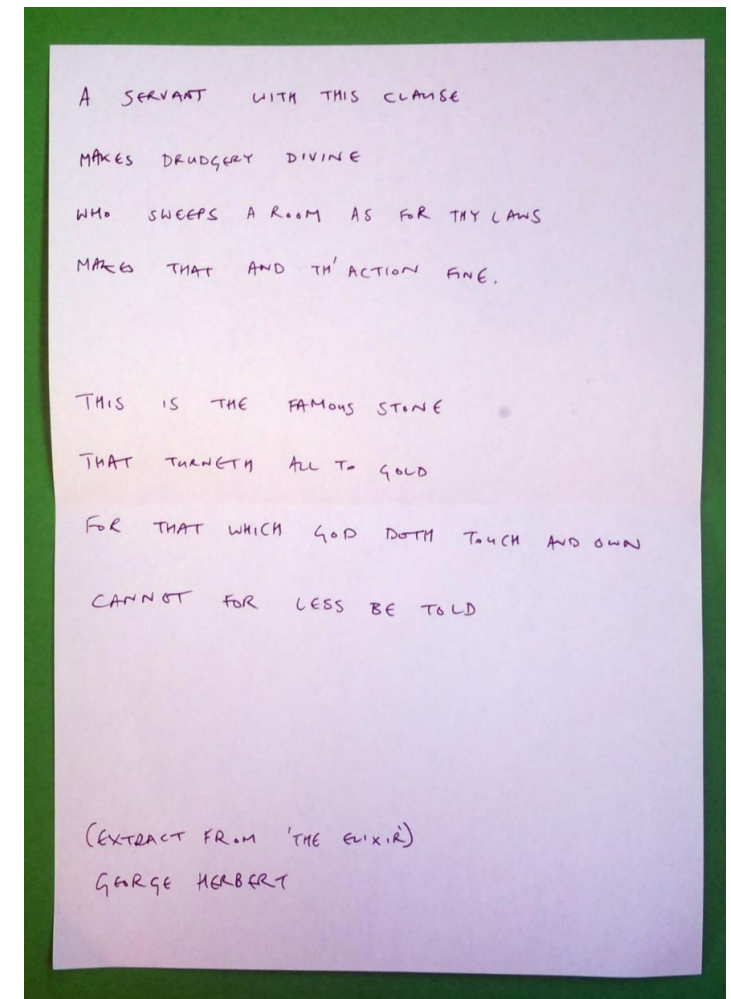 A SERVANT WITH THIS CLAUSE
MAKES DRUDGERY DIVINE
WHO SWEEPS A ROOM AS FOR THY LAWS
MAKES THAT AND TH' ACTION FINE.
THIS IS THE FAMOUS STONE
THAT TURNETH ALL TO GOLD
FOR THAT WHICH GOD DOTH TOUCH AND OWN
CANNOT FOR LESS BE TOLD
(EXTRACT FROM 'THE ELIXIR')
GEORGE HERBERT